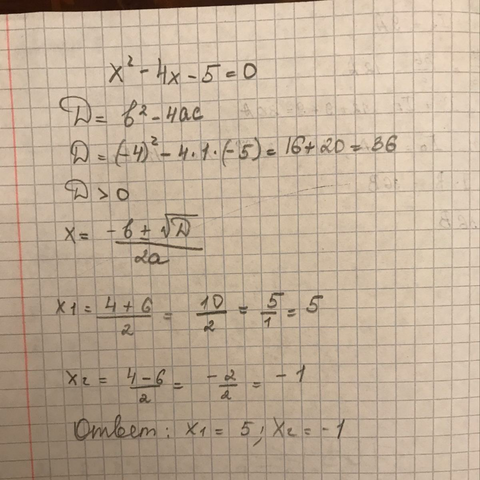 x² - 4x - 5 = 0
D = b² - 4ac
D = (-4)² - 4·1·(-5) = 16 + 20 = 36
D > 0
x = \frac{-b ± √D}{2a}
x1 = \frac{4 + 6}{2} = \frac{10}{2} = \frac{5}{1} = 5
x2 = \frac{4 - 6}{2} = \frac{-2}{2} = -1
Ответ: x1 = 5; x2 = -1